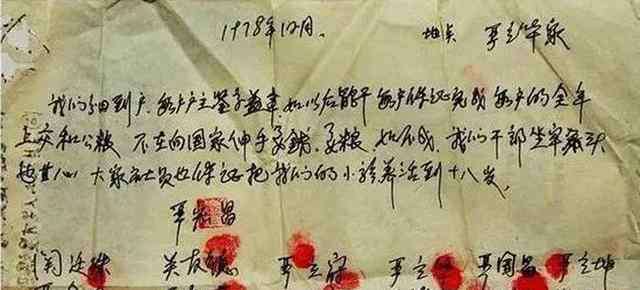 1978年12月. 地点 严立华家
我们分田到户,每户户主签字盖章,如以后能干,每户保证完成每户的全年
上交和公粮.不在向国家伸手要钱要粮.如不成,我们干部坐牢杀头
也甘心,大家社员也保证把我们的小孩养活到十八岁.
严宏昌
关廷珠 关友德 严立符 严立华 严国昌 严立坤